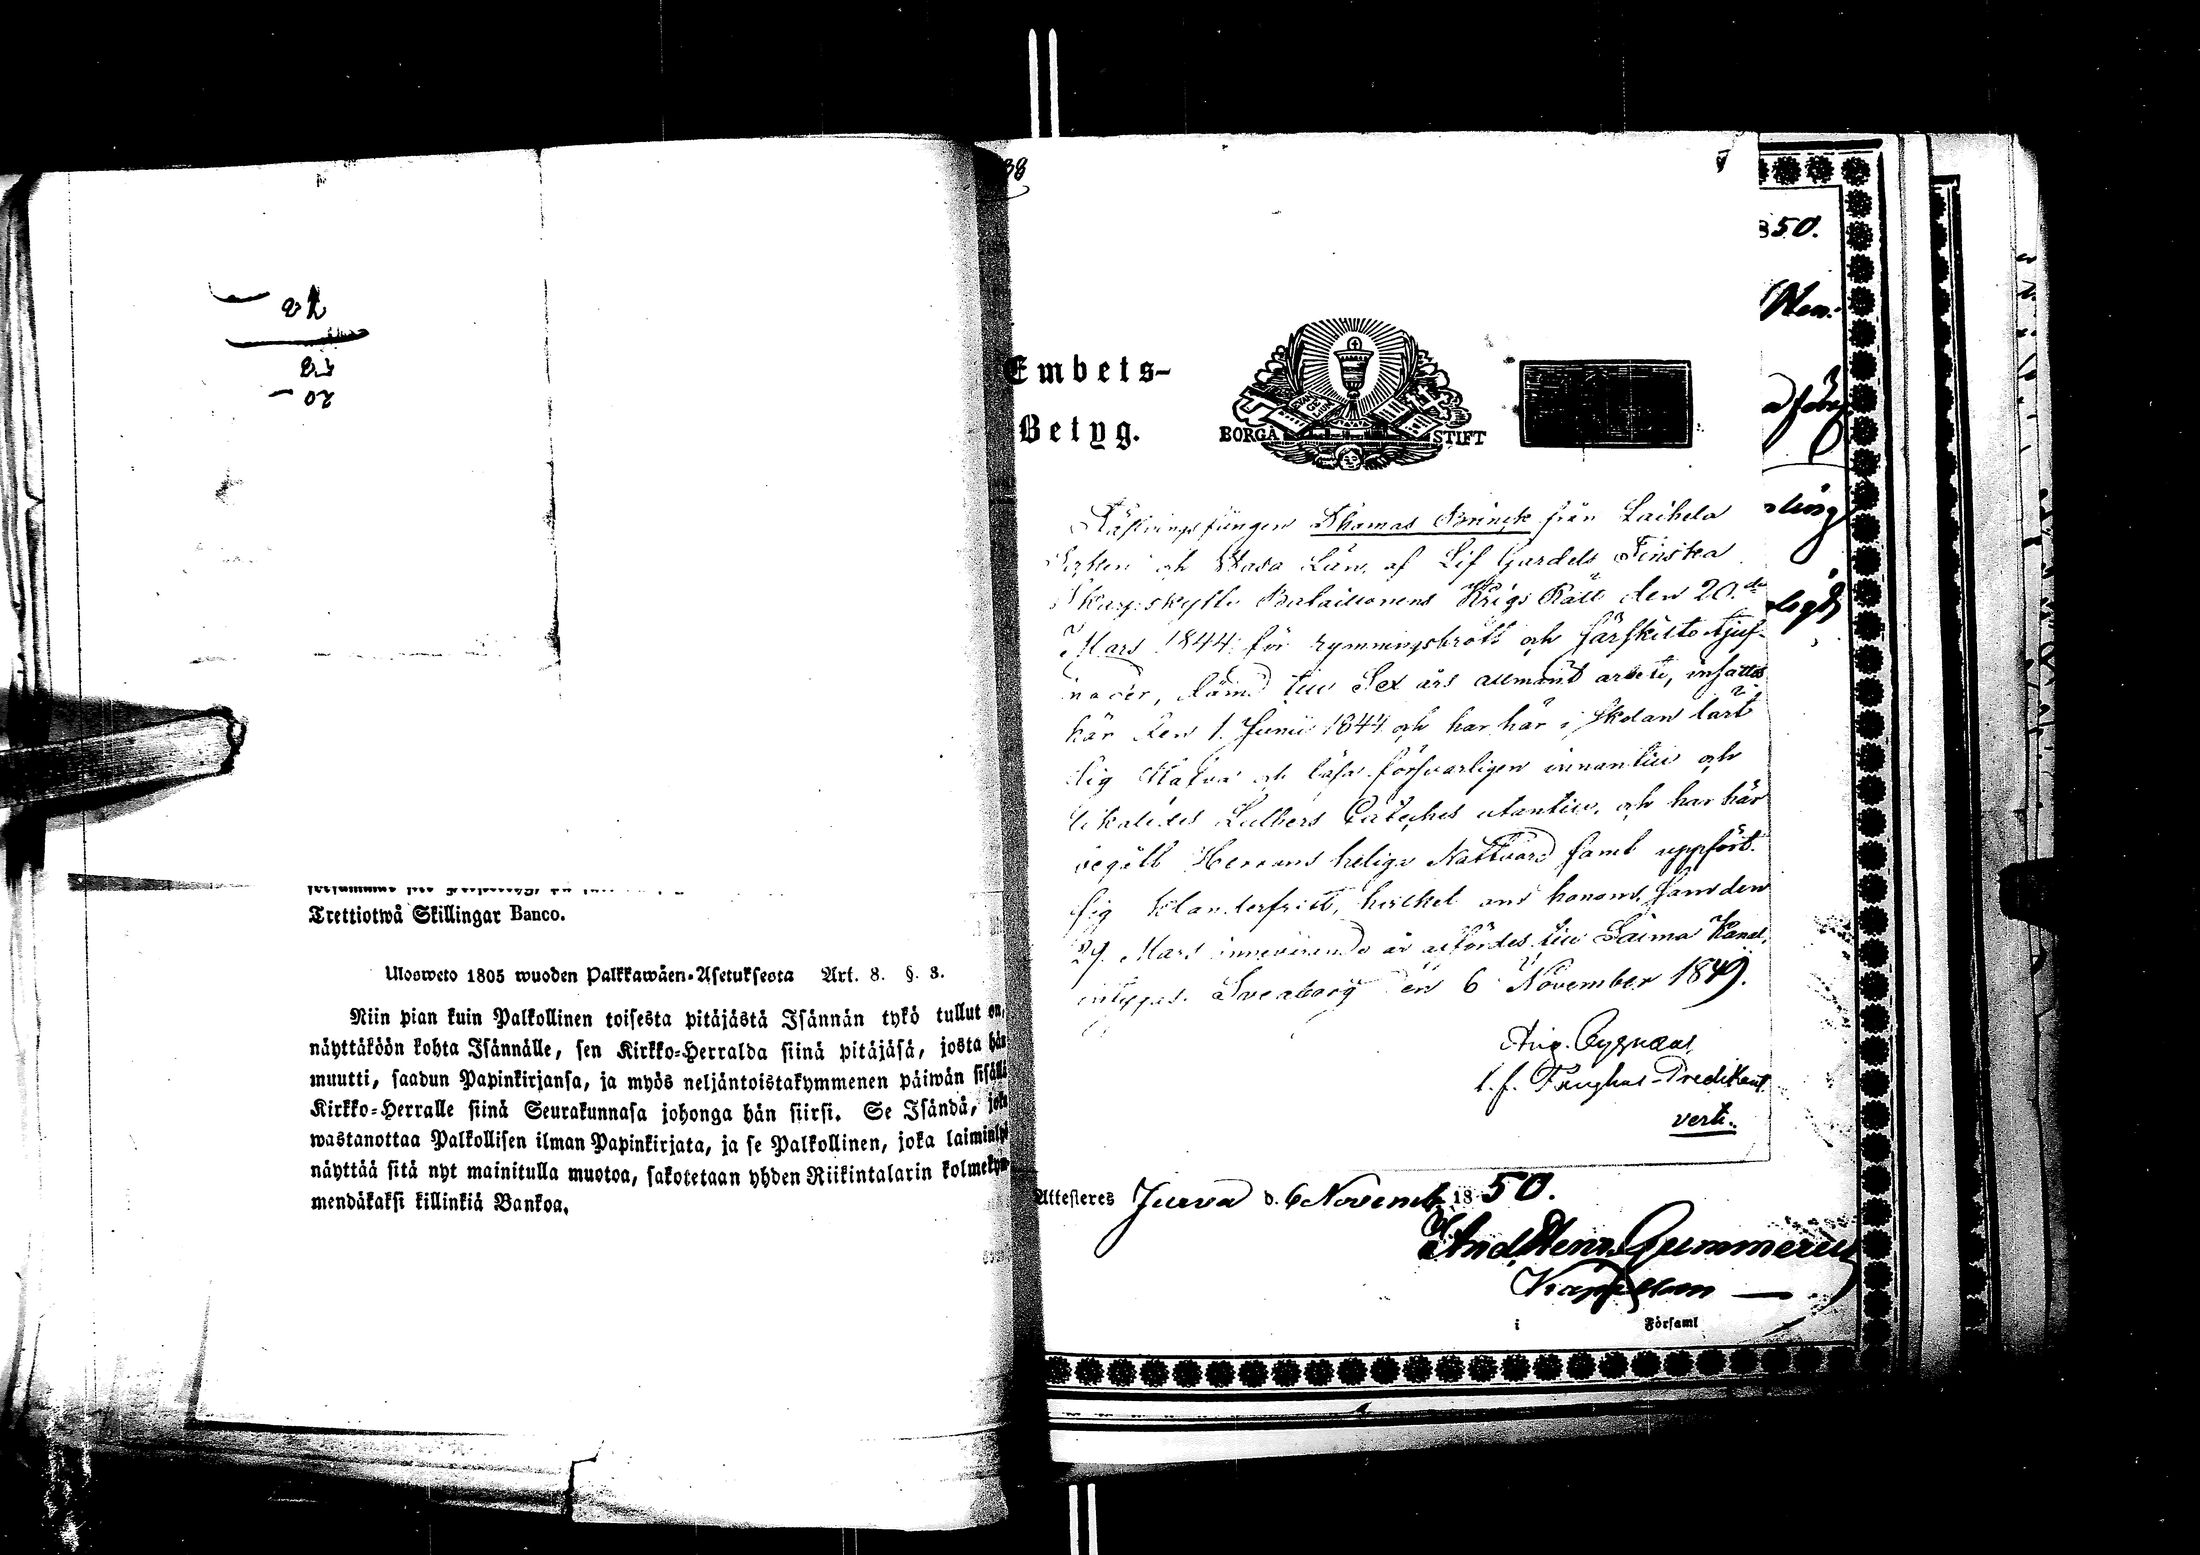 72
58
20 -
Trettiotwå Skillingar Banco.
Ulosweto 1805 wuoden Palkkawäen-Asetuksesta Art. 8. §. 3.
Niin pian kuin Palkollinen toisesta pitäjästä Isännän tykö tullut on,
näyttäköön kohta Isännälle, sen Kirkko-Herralda siinä pitäjäsä, josta hän
muutti, saadun Papinkirjansa, ja myös neljäntoistakymmenen päiwän sisällä
Kirkko-Herralle siinä Seurakunnasa johonga hän siirsi. Se Isändä, joka
wastanottaa Palkollisen ilman Papinkirjata, ja se Palkollinen, joka
näyttää sitä nyt mainitulla muotoa, sakotetaan yhden Riikintalarin
mendäkaksi killinkiä Bankoa.
38
Embets-
Betyg.
BORGÅ STIFT
Fästningsfången Thomas Brinck från Laihela
Socken och Wasa Län, af Lif Gardets Finska
Skarpskytte Bataillonens Krigs Rätt den 20.de
Mars 1844 för rymningsbrott och färskilte tjuf-
nader, dämd till Sex års allmänt arbete, insattes
här den 1. Junii 1844 och har här i skolan lärt
sig stafva och läsa försvarligen innantill och
likaledes Luthers Cateches utantill, och har här
begått Herrans heliga Nattvard samt uppfört
sig klanderfritt, hvilket om honom, som den
29 Mars innevarande år affördes till Saima Kanal,
intygas. Sveaborg den 6 November 1849.
Aug. Cygnæus,
t. f. Fånghus-Predikant
verte.
Attesteres Jurva d. 6 Novemb. 1850.
And. Henr. Gummerus
Kapellan
i Församl
850.